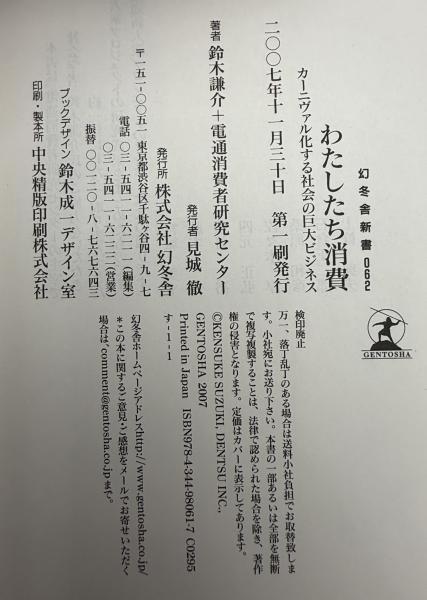 幻冬舎新書 062
わたしたち消費
カーニヴァル化する社会の巨大ビジネス
二〇〇七年十一月三十日 第一刷発行
著者 鈴木謙介+電通消費者研究センター
発行者 見城 徹
発行所 株式会社 幻冬舎
〒一五一-〇〇五一 東京都渋谷区千駄ヶ谷四-九-七
電話 〇三-五四一一-六二一一(編集)
〇三-五四一一-六二二二(営業)
振替 〇〇一二〇-八-七六七六四三
ブックデザイン 鈴木成一デザイン室
印刷・製本所 中央精版印刷株式会社
GENTOSHA
検印廃止
万一、落丁乱丁のある場合は送料小社負担でお取替致しま
す。小社宛にお送り下さい。本書の一部あるいは全部を無断
で複写複製することは、法律で認められた場合を除き、著作
権の侵害となります。定価はカバーに表示してあります。
©KENSUKE SUZUKI, DENTSU INC.,
GENTOSHA 2007
Printed in Japan ISBN978-4-344-98061-7 C0295
す-1-1
幻冬舎ホームページアドレスhttp://www.gentosha.co.jp/
*この本に関するご意見・ご感想をメールでお寄せいただく
場合は、comment@gentosha.co.jpまで。